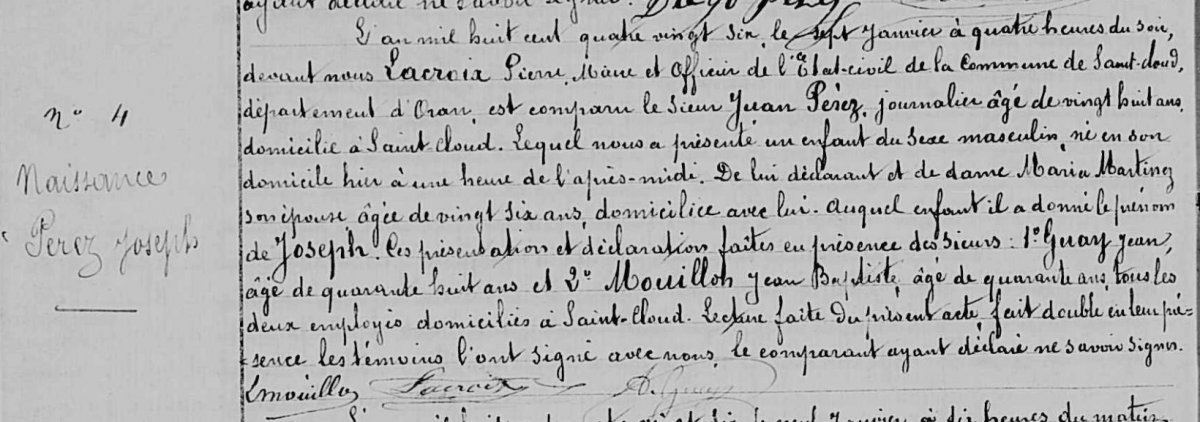 ayant déclaré ne savoir signer. Diego Perez
L'an mil huit cent quatre vingt six, le sept Janvier à quatre heures du soir,
devant nous Lacroix Pierre, Maire et Officier de l'Etat-civil de la Commune de Saint-Cloud,
département d'Oran, est comparu le sieur Juan Pérez, journalier âgé de vingt huit ans,
domicilié à Saint-Cloud. Lequel nous a présenté un enfant du sexe masculin, né en son
domicile hier à une heure de l'après-midi. De lui déclarant et de dame Maria Martinez
son épouse âgée de vingt six ans, domiciliée avec lui. Auquel enfant il a donné le prénom
de Joseph. Ces présentation et déclaration faites en présence des sieurs : 1º Guay Jean,
âgé de quarante huit ans et 2º Mouillon Jean Baptiste, âgé de quarante ans, tous les
deux employés domiciliés à Saint-Cloud. Lecture faite du présent acte, fait double en leur pré-
-sence les témoins l'ont signé avec nous, le comparant ayant déclaré ne savoir signer.
Lacroix
Nº 4
Naissance
Perez Joseph